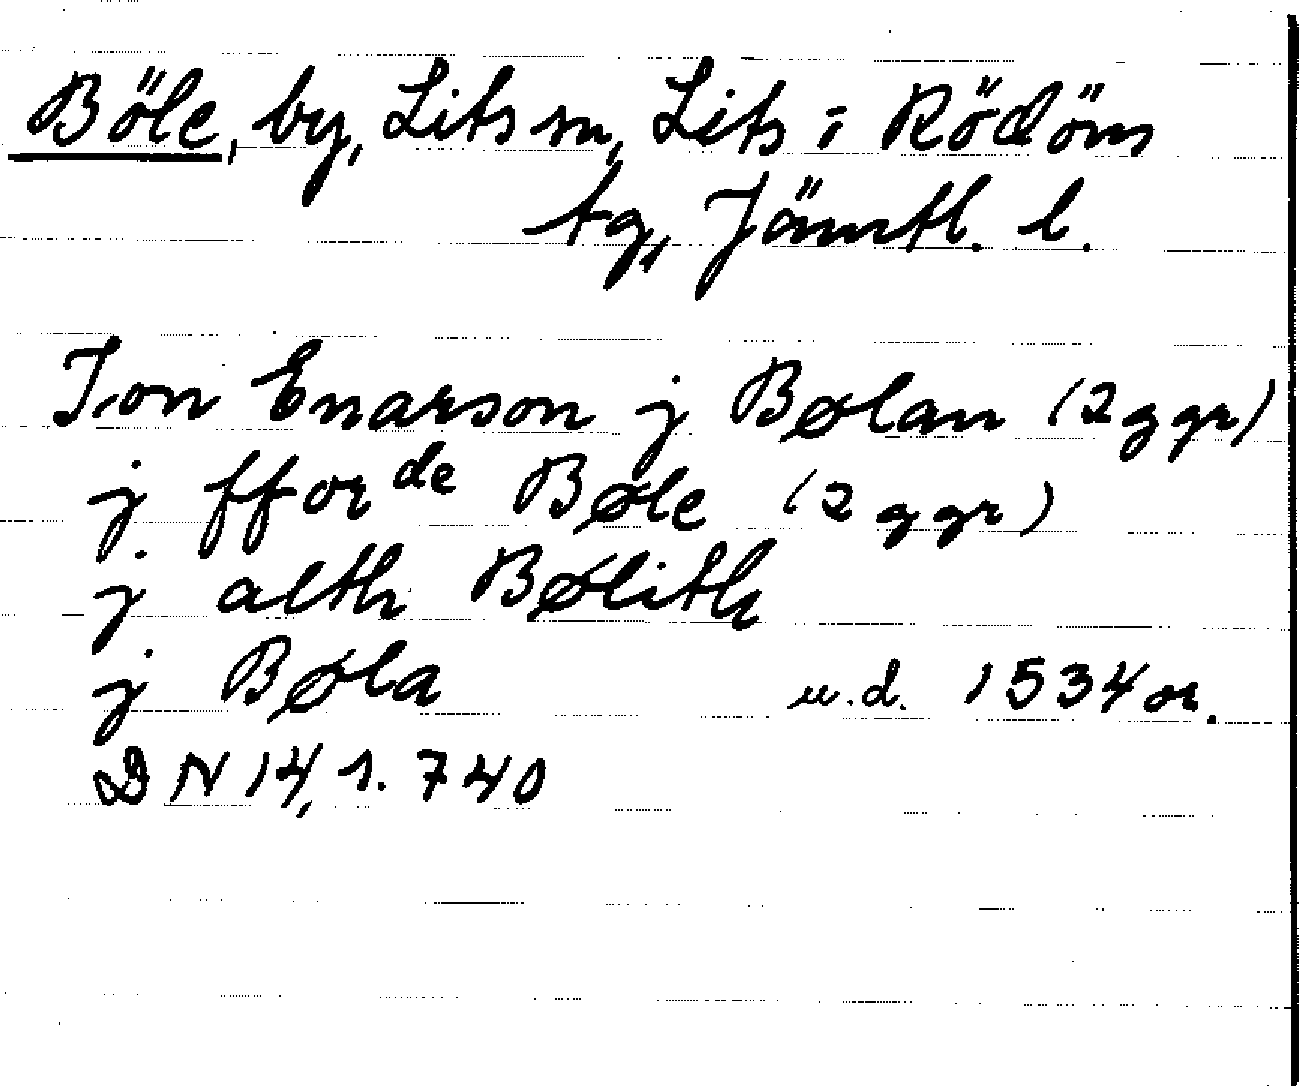 Böle, by, Lits sn, Lits i Rödöns
tg, Jämtl. l.
Jon Enarson j Bølan (2 ggr)
j fforde Bøle (2 ggr)
j alth Bølith
j Bøla u.d. 1534 or.
DN 14, s. 740